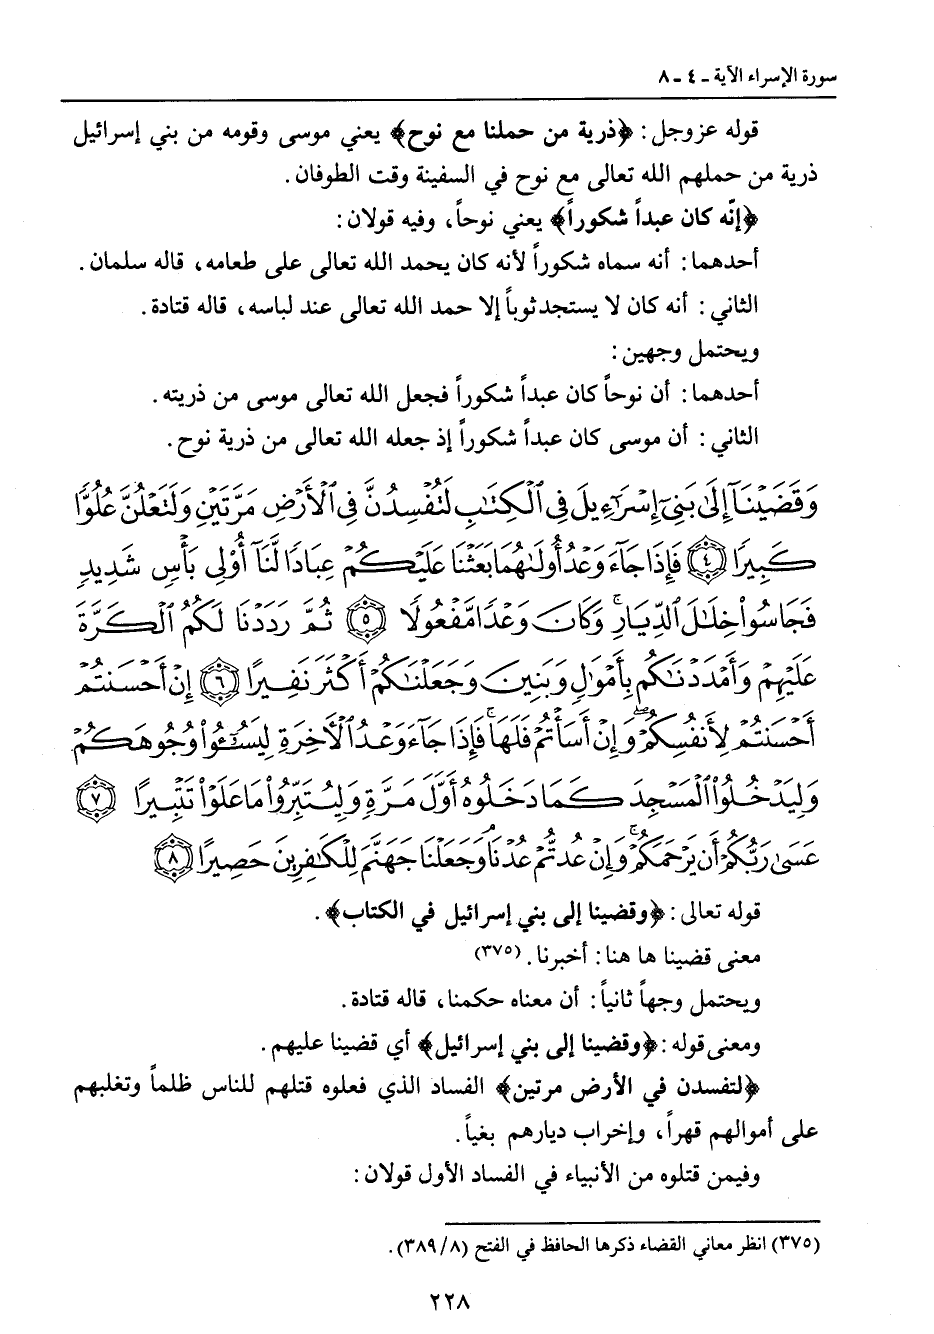 سورة الإسراء الآية - ٤ - ٨
قوله عزوجل : ﴿ذرية من حملنا مع نوح﴾ يعني موسى وقومه من بني إسرائيل
ذرية من حملهم الله تعالى مع نوح في السفينة وقت الطوفان .
﴿إنّه كان عبداً شكوراً﴾ يعني نوحاً، وفيه قولان:
أحدهما: أنه سماه شكوراً لأنه كان يحمد الله تعالى على طعامه، قاله سلمان .
الثاني: أنه كان لا يستجد ثوباً إلا حمد الله تعالى عند لباسه، قاله قتادة .
ويحتمل وجهين:
أحدهما: أن نوحاً كان عبداً شكوراً فجعل الله تعالى موسى من ذريته .
الثاني: أن موسى كان عبداً شكوراً إذ جعله الله تعالى من ذرية نوح .
وَقَضَيْنَآ إِلَىٰ بَنِىٓ إِسْرَٰٓءِيلَ فِى ٱلْكِتَٰبِ لَتُفْسِدُنَّ فِى ٱلْأَرْضِ مَرَّتَيْنِ وَلَتَعْلُنَّ عُلُوًّا
كَبِيرًا ﴿٤﴾ فَإِذَا جَآءَ وَعْدُ أُولَىٰهُمَا بَعَثْنَا عَلَيْكُمْ عِبَادًا لَّنَآ أُو۟لِى بَأْسٍ شَدِيدٍ
فَجَاسُوا۟ خِلَٰلَ ٱلدِّيَارِ ۚ وَكَانَ وَعْدًا مَّفْعُولًا ﴿٥﴾ ثُمَّ رَدَدْنَا لَكُمُ ٱلْكَرَّةَ
عَلَيْهِمْ وَأَمْدَدْنَٰكُم بِأَمْوَٰلٍ وَبَنِينَ وَجَعَلْنَٰكُمْ أَكْثَرَ نَفِيرًا ﴿٦﴾ إِنْ أَحْسَنتُمْ
أَحْسَنتُمْ لِأَنفُسِكُمْ ۖ وَإِنْ أَسَأْتُمْ فَلَهَا ۚ فَإِذَا جَآءَ وَعْدُ ٱلْأَخِرَةِ لِيَسُۥٓـُٔوا۟ وُجُوهَكُمْ
وَلِيَدْخُلُوا۟ ٱلْمَسْجِدَ كَمَا دَخَلُوهُ أَوَّلَ مَرَّةٍ وَلِيُتَبِّرُوا۟ مَا عَلَوْا۟ تَتْبِيرًا ﴿٧﴾
عَسَىٰ رَبُّكُمْ أَن يَرْحَمَكُمْ ۚ وَإِنْ عُدتُّمْ عُدْنَا ۘ وَجَعَلْنَا جَهَنَّمَ لِلْكَٰفِرِينَ حَصِيرًا ﴿٨﴾
قوله تعالى: ﴿وقضينا إلى بني إسرائيل في الكتاب﴾ .
معنى قضينا ها هنا: أخبرنا . (٣٧٥)
ويحتمل وجهاً ثانياً: أن معناه حكمنا، قاله قتادة .
ومعنى قوله: ﴿وقضينا إلى بني إسرائيل﴾ أي قضينا عليهم .
﴿لتفسدن في الأرض مرتين﴾ الفساد الذي فعلوه قتلهم للناس ظلماً وتغلبهم
على أموالهم قهراً، وإخراب ديارهم بغياً .
وفيمن قتلوه من الأنبياء في الفساد الأول قولان:
(٣٧٥) انظر معاني القضاء ذكرها الحافظ في الفتح (٣٨٩/٨) .
٢٢٨